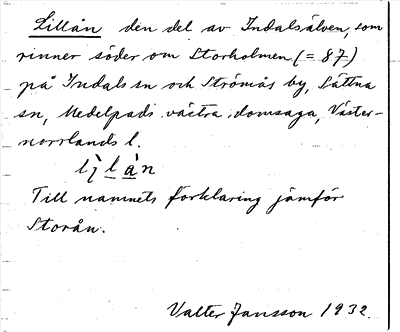 Lillån den del av Indalsälven, som
rinner söder om Storholmen (= 87)
på Indals sn och Strömås by, Sättna
sn, Medelpads västra domsaga, Väster-
norrlands l.
Till namnets förklaring jämför
Storån.
Valter Jansson 1932.